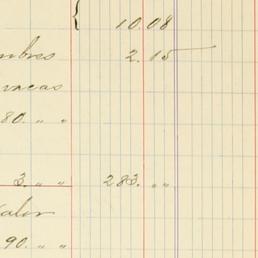 10.08
mbres 2.15
vacas
80. " "
3. " " 283. " "
valor
90. " "